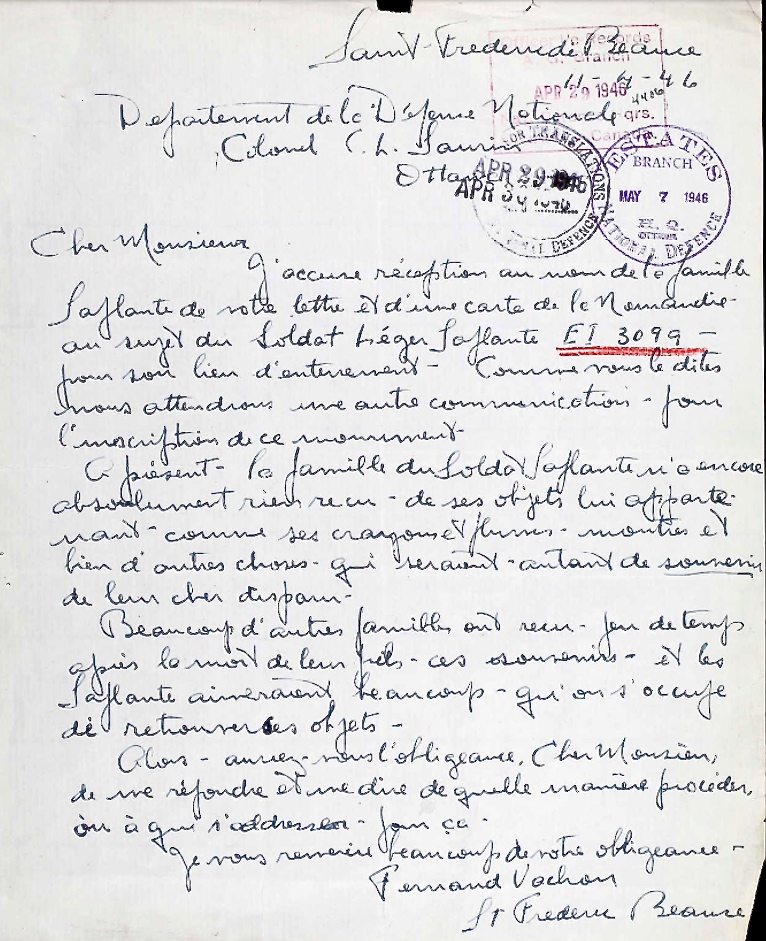 Saint-Frederic de Beauce
11-4-46
4406
Officer i/c Records
A. G. Branch
APR 29 1946
qrs.
Canada
Departement de la Défense Nationale
Colonel C. L. Laurin
Ottawa
FOR TRANSLATIONS
APR 29 1946
APR 30 1946
NATIONAL DEFENCE
ESTATES
BRANCH
MAY 7 1946
H. Q.
OTTAWA
NATIONAL DEFENCE
Cher Monsieur
J'accuse réception au nom de la famille
Laflante de votre lettre et d'une carte de la Normandie
au sujet du Soldat Léger Laflante EI 3099 -
pour son lieu d'enterrement - Comme vous le dites
nous attendrons une autre communication - pour
l'inscription de ce monument-
A présent - la famille du Soldat Laflante n'a encore
absolument rien recu - de ses objets lui apparte-
nant - comme ses crayons et plumes - montres et
bien d'autres choses - qui seraient - autant de souvenir
de leur cher disparu -
Beaucoup d'autres familles ont recu - peu de temps
après la mort de leur fils - ces souvenirs - et les
Laflante aimeraient beaucoup - qu'on s'occupe
de retrouver ses objets -
Alors - auriez-vous l'obligeance, Cher Monsieur,
de me répondre et me dire de quelle manière procéder,
ou à qui s'addresser - pour ça -
Je vous remercie beaucoup de votre obligeance -
Fernand Vachon
St Frederic Beauce